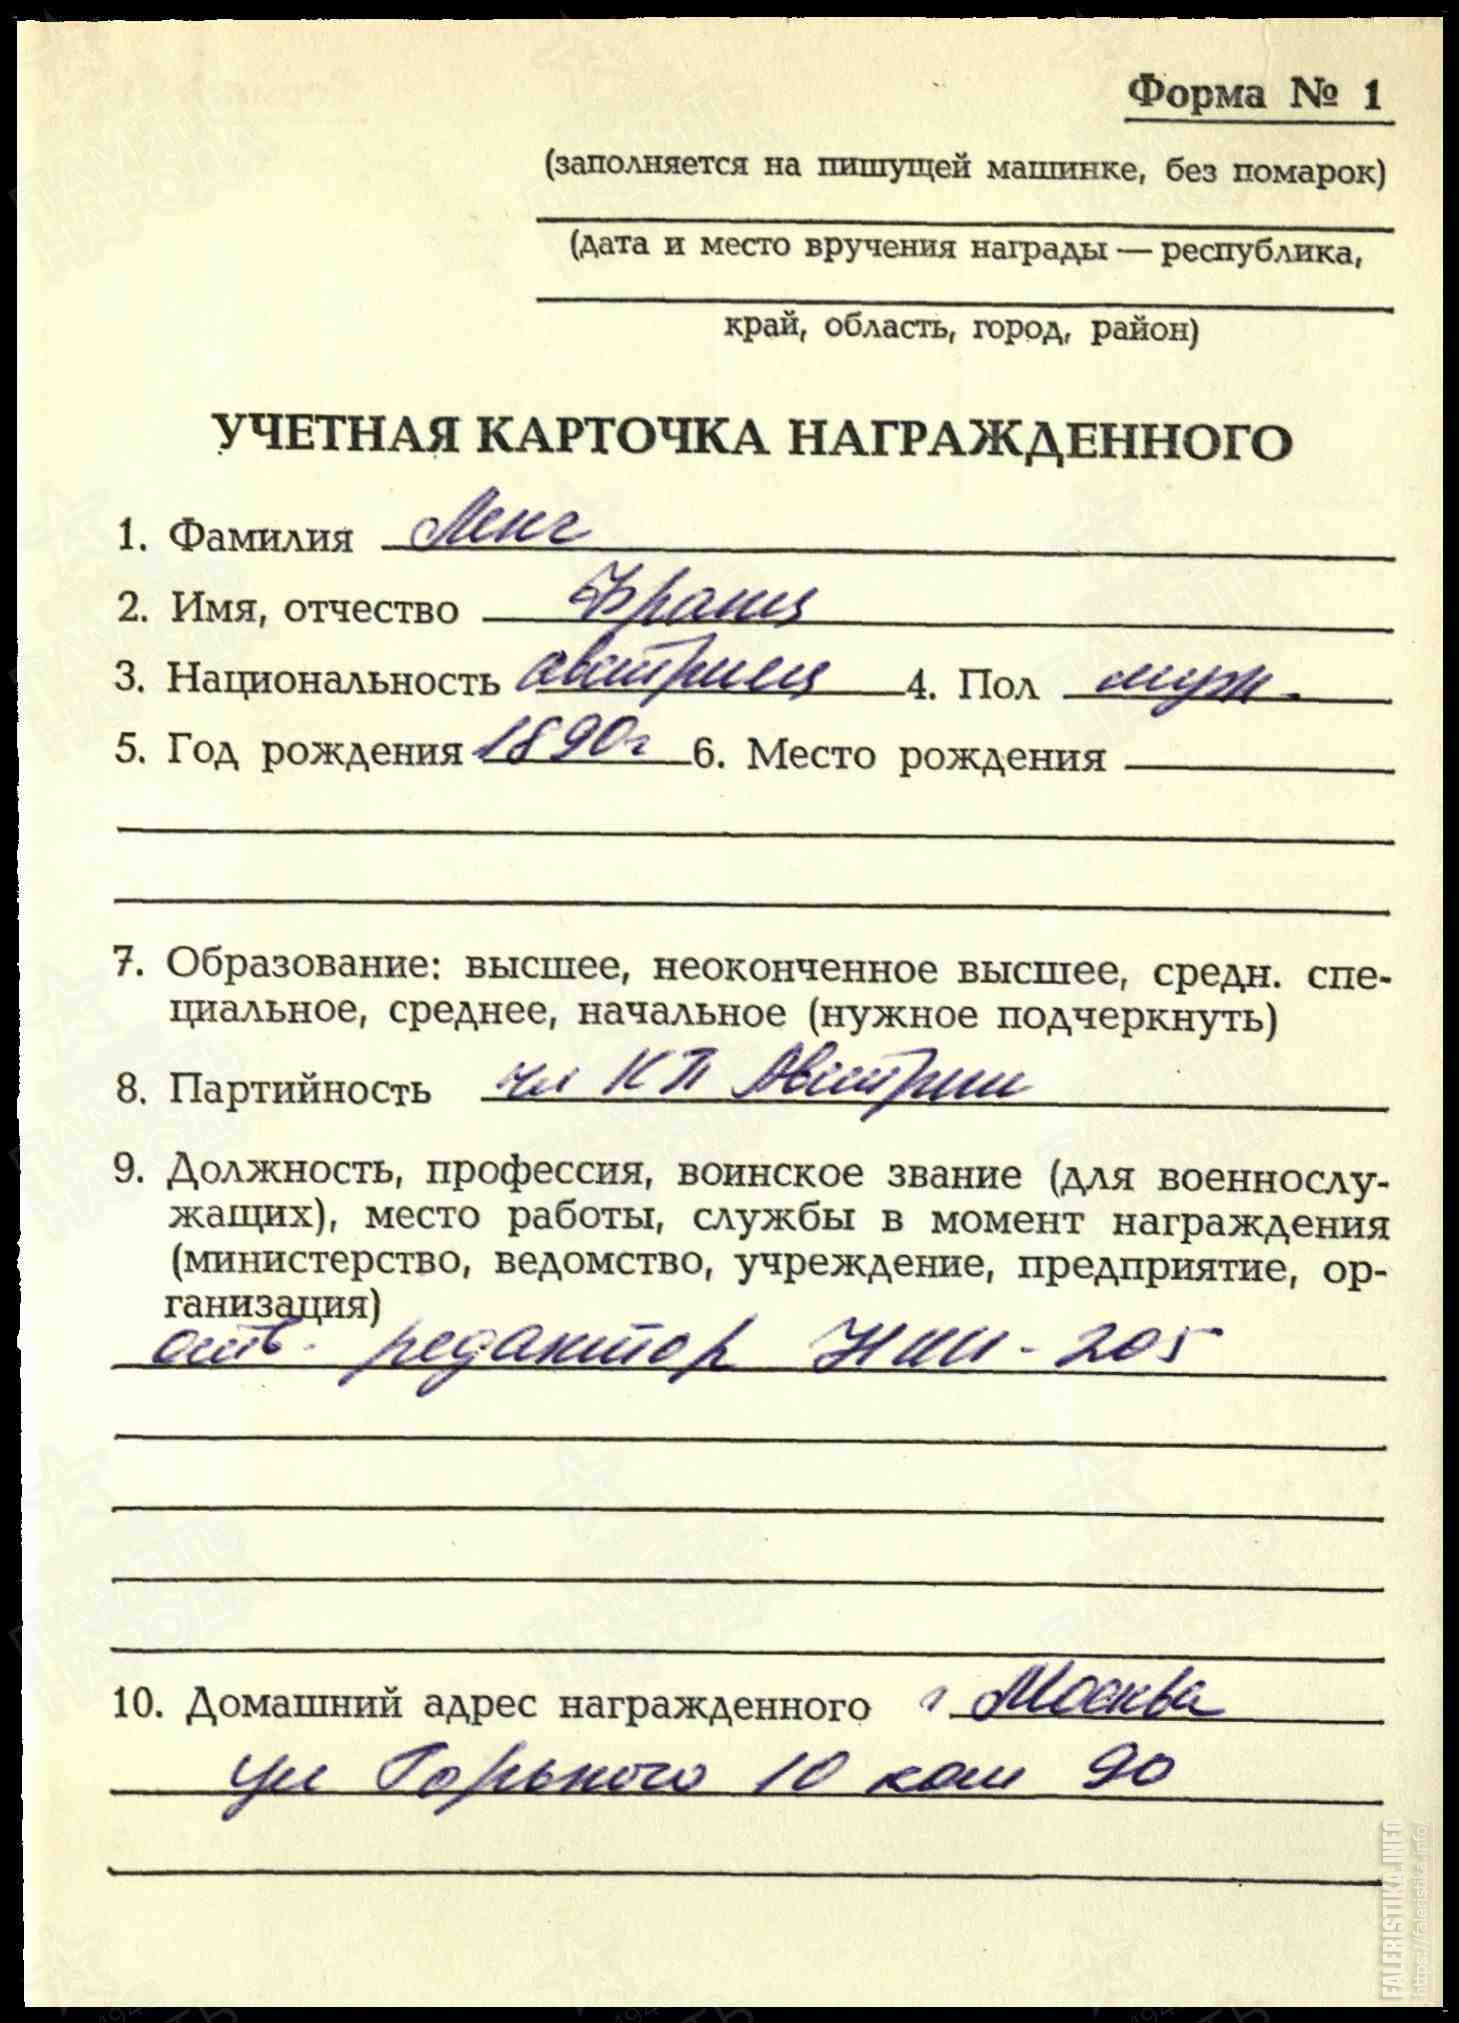 Форма № 1
(заполняется на пишущей машинке, без помарок)
(дата и место вручения награды — республика,
край, область, город, район)
УЧЕТНАЯ КАРТОЧКА НАГРАЖДЕННОГО
1. Фамилия Ленг
2. Имя, отчество Франц
3. Национальность австриец 4. Пол муж.
5. Год рождения 1890г 6. Место рождения
7. Образование: высшее, неоконченное высшее, средн. спе-
циальное, среднее, начальное (нужное подчеркнуть)
8. Партийность чл КП Австрии
9. Должность, профессия, воинское звание (для военнослу-
жащих), место работы, службы в момент награждения
(министерство, ведомство, учреждение, предприятие, ор-
ганизация)
отв. редактор НИИ-205
10. Домашний адрес награжденного г Москва
ул Горького 10 ком 90
FALERISTIKA.INFO
https://faleristika.info